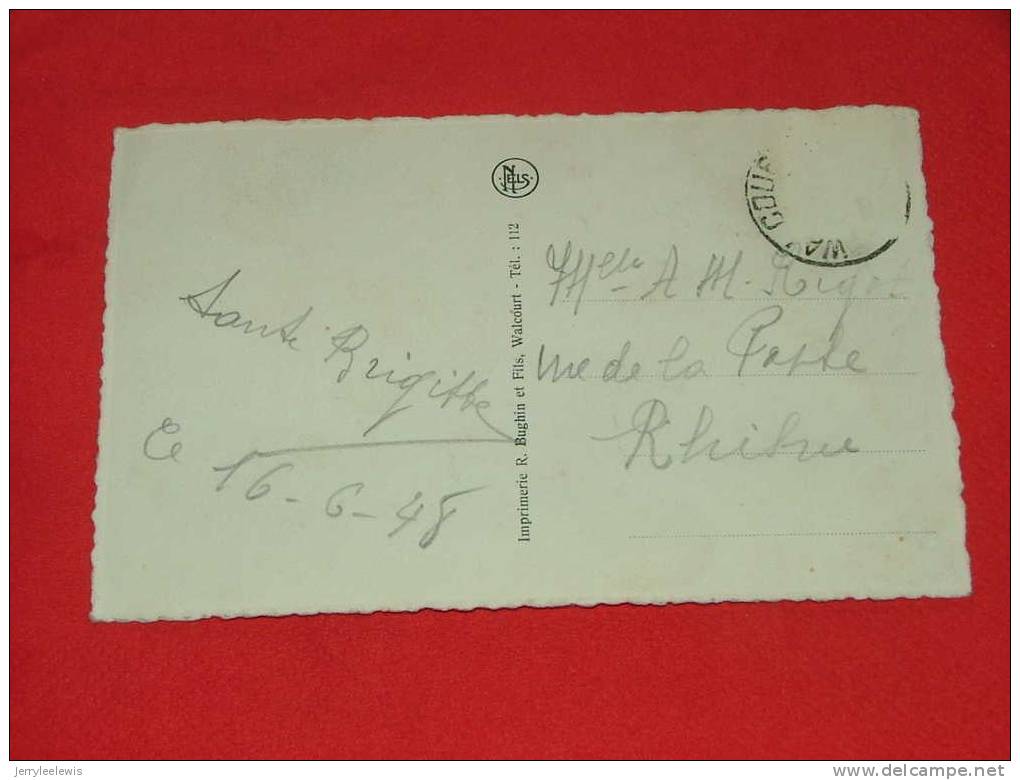 NELS
Tante Brigitte
Le
16-6-48
Imprimerie R. Bughin et Fils, Walcourt - Tél. : 112
COUR
WA
Melle A M. Rigot
rue de la Poste
jerryleelewis
www.delcampe.net